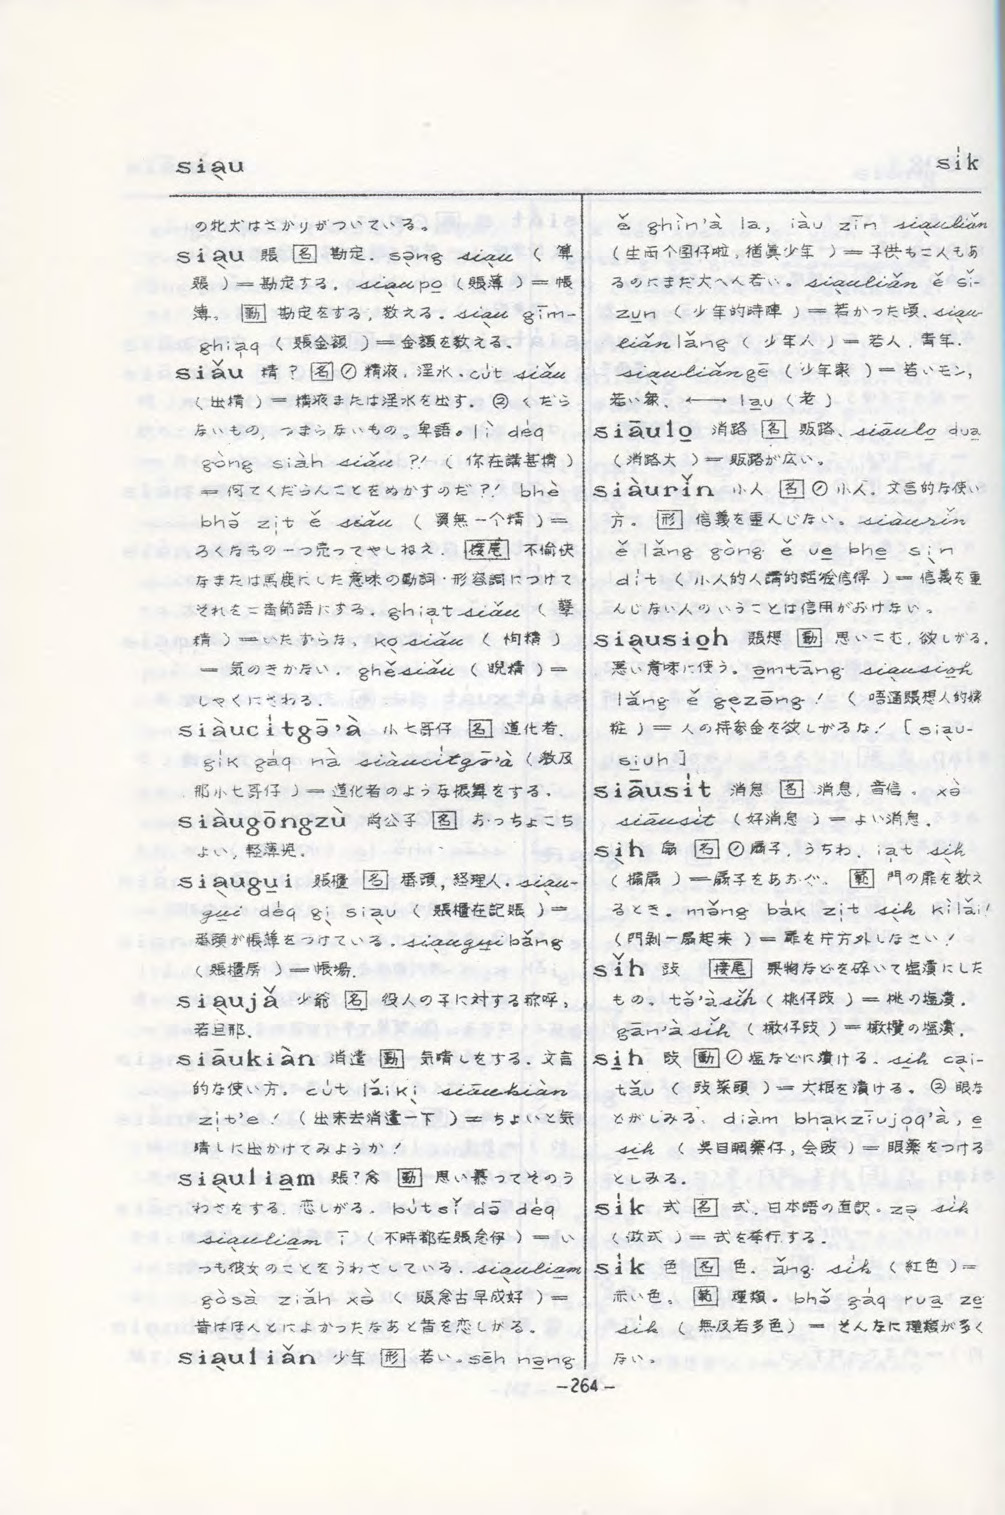 siạu
sı̍k
の牝犬はさかりがついている。
siạu 賬 [名] 勘定. sǝ̣ng siạu ( 算
賬 )＝勘定する. siạupo̱ (賬簿 )＝帳
簿. [動] 勘定をする, 数える. siạu gīm-
ghiāq ( 賬金額 )＝金額を数える.
siǎu 精？ [名] ①精液. 淫水. cút siǎu
( 出精 )＝精液または淫水を出す. ② くだら
ないもの, つまらないもの。卑語. lì déq
gòng siàh siǎu ?! ( 你在講甚精 )
＝何てくだらんことをぬかすのだ?! bhè
bhǝ̌ zı̣t ě siǎu ( 賣無一个精 )＝
ろくなもの一つ売ってやしねえ. [接尾] 不愉快
なまたは馬鹿にした意味の動詞・形容詞につけて
それを二音節語にする. ghiạt siǎu ( 孽
精 )＝いたずらな. kọ siǎu ( 怐精 )
＝ 気のきかない. ghěsiǎu ( 睨精 )＝
しゃくにさわる.
siàucítgǝ̄'à 小七哥仔 [名] 道化者.
gı́k gáq nà siàucítgǝ̄'à (激及
那小七哥仔 )＝道化者のような振舞をする.
siàugōngzù 尚公子 [名] おっちょこち
ょい, 軽薄児.
siạugu̱i 賬櫃 [名] 番頭, 経理人. siạu-
gu̱i déq gị siạu ( 賬櫃在記賬 )＝
番頭が帳簿をつけている. siạugu̱ibǎng
( 賬櫃房 )＝帳場.
siạujǎ 少爺 [名] 役人の子に対する称呼,
若旦那.
siāukiàn 消遣 [動] 気晴しをする. 文言
的な使い方. cút lǎikị siāukiàn
zı̣t'e̱ ! ( 出来去消遣一下 )＝ちょいと気
晴しに出かけてみようか!
siạulia̱m 賬?念 [動] 思い慕ってそのう
わさをする. 恋しがる. bútsǐ dǝ̄ déq
siạulia̱m ī ( 不時都在賬念伊 )＝い
つも彼女のことをうわさしている. siạulia̱m
gòsà ziàh xǝ̀ ( 賬念古早成好 )＝
昔はほんとによかったなあと昔を恋しがる.
siạuliǎn 少年 [形] 若い。sēh nǝ̱ng
ě ghìn'à la, iàu zīn siạuliǎn
(生両个囝仔啦, 猶真少年 )＝子供も二人もあ
るのにまだ大へん若い。siạuliǎn ě sǐ-
zun ( 少年的時陣 )＝若かった頃. siạu-
liǎnlǎng ( 少年人 )＝若人, 青年.
siạuliǎngē (少年家 )＝若いモン,
若い衆. ←→ la̱u (老 )
siāulo̱ 消路 [名] 販路. siāulo̱ dua̱
( 消路大 )＝販路が広い。
siàurǐn 小人 [名] ①小人. 文言的な使い
方. [形] 信義を重んじない。siàurǐn
ě lǎng gòng ě ue̱ bhe̱ sịn
dít ( 小人的人講的話𣍐信得 )＝信義を重
んじない人のいうことは信用がおけない。
siạusio̱h 賬想 [動] 思いこむ. 欲しがる.
悪い意味に使う. ǝ̱mtāng siạusio̱h
lǎng ě gẹzǝ̄ng ! ( 唔通賬想人的嫁
粧 )＝人の持参金を欲しがるな! [siạu-
siu̱h ]
siāusít 消息 [名] 消息, 音信. xǝ̀
siāusít (好消息 )＝よい消息.
sịh 扇 [名] ①扇子. うちわ. iạt sịh
( 擛扇 )＝扇子をあおぐ. [範] 門の扉を数え
るとき. mǝ̌ng bák zı̣t sịh kı̀lǎi!
(門剝一扇起来 )＝扉を片方外しなさい!
sǐh 豉 [接尾] 果物などを砕いて塩漬にした
もの. tǝ̌'àsǐh (桃仔豉 )＝桃の塩漬.
gān'àsǐh (橄仔豉 )＝橄欖の塩漬.
si̱h 豉 [動] ①塩などに漬ける. si̱h cại-
tǎu ( 豉菜頭 )＝大根を漬ける. ② 眼な
どがしみる. diàm bhakzīujo̱q'à, e̱
si̱h ( 點目睭藥仔, 会豉 )＝眼薬をつける
としみる.
sík 式 [名] 式. 日本語の直訳. zǝ̣ sík
( 做式 )＝式を挙行する.
sı́k 色 [名] 色. ǎng sík (紅色 )＝
赤い色. [範] 種類. bhǝ̌ gáq rua̱ ze̱
sík ( 無及若多色 )＝ そんなに種類が多く
ない。
-264-